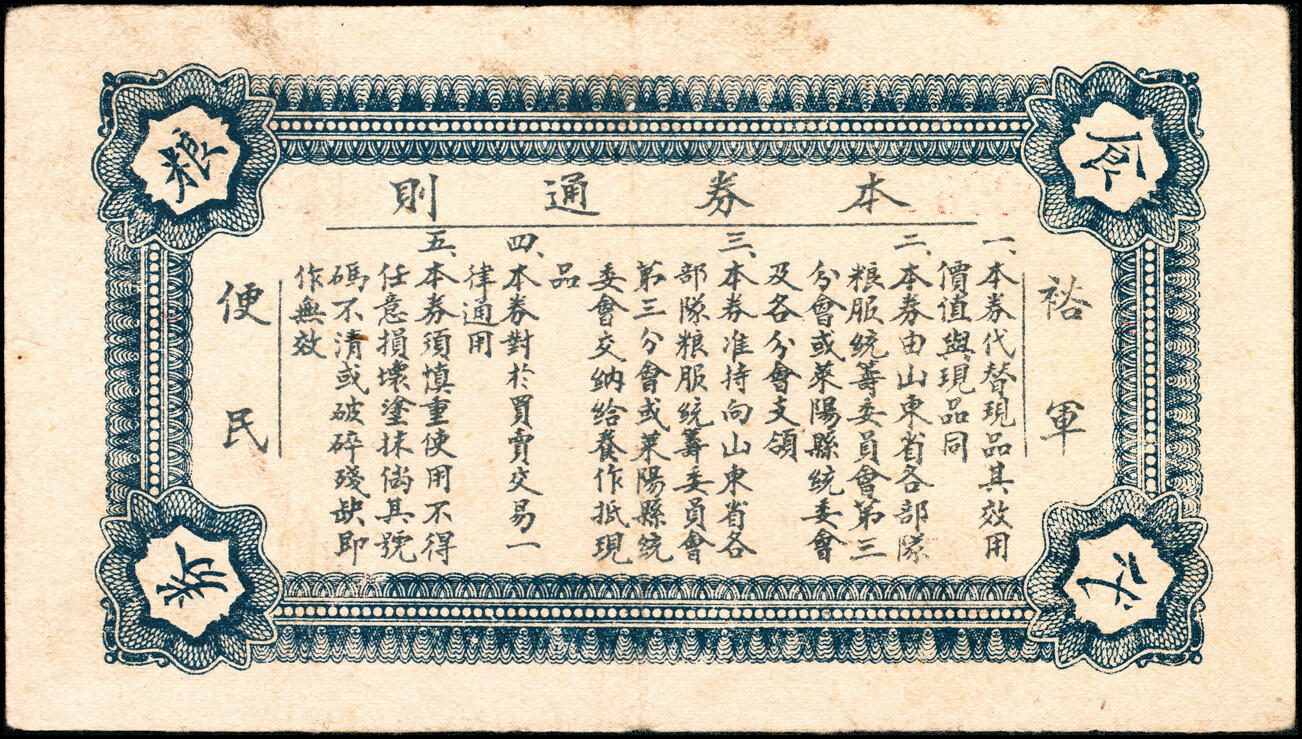 本券通則
裕軍
一、本券代替現品其效用
價值與現品同
二、本券由山東省各部隊
粮服統籌委員會第三
分會或萊陽縣統委會
及各分會支領
三、本券准持向山東省各
部隊粮服統籌委員會
第三分會或萊陽縣統
委會交納給養作抵現
品
四、本券對於買賣交易一
律通用
五、本券須慎重使用不得
任意損壞塗抹倘其號
碼不清或破碎殘缺即
作無效
便民
粮
券